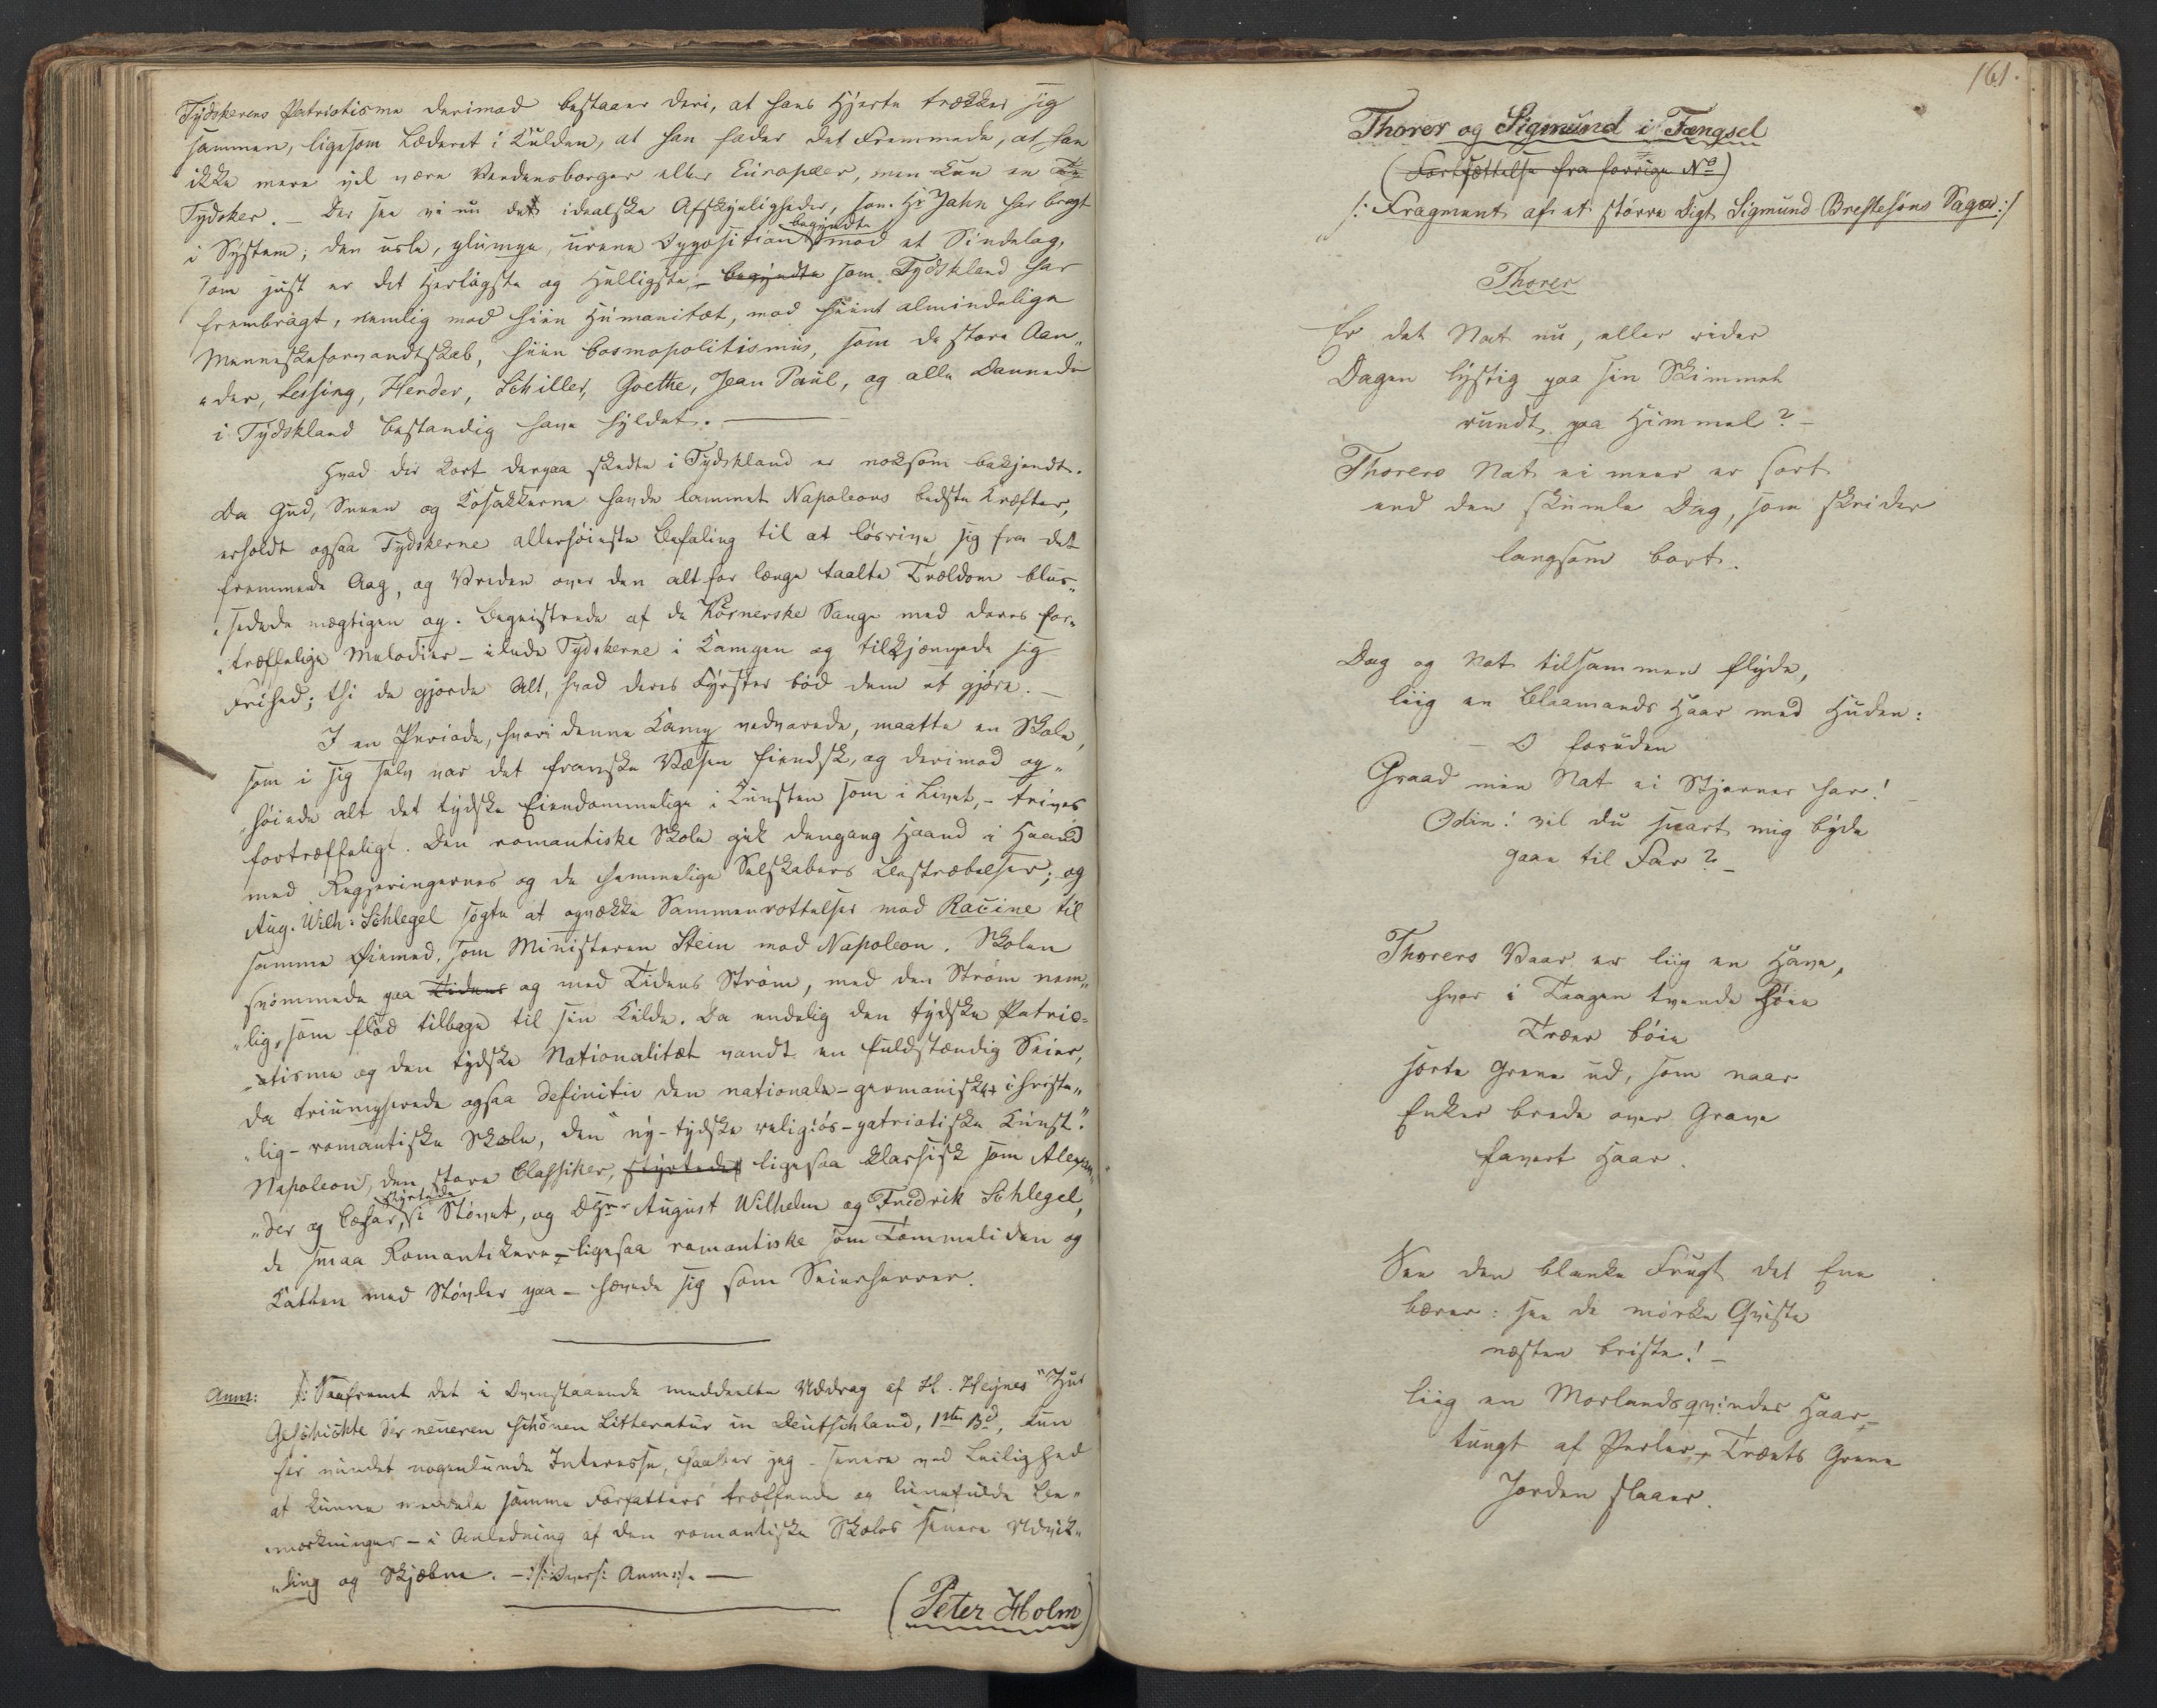 Tydskerens Patriotisme derimod bestaaer deri, at hans Hjerte trækker sig
sammen, ligesom Læderet i Kulden, at han hader det Fremmede, at han
ikke mere vil være Verdensborger eller Europæer, men kun en
Tydsker. – Der see vi nu det idealske Afskyeligheder, som Hr Jahn har bragt
i System; den usle, plumpe, urene Opposition begyndte mod et Sindelag,
som just er det Herligste og Helligste, – begyndte som Tydskland har
frembragt, nemlig mod hiin Humanitæt, mod hiint almindelige
Menneskeforvandtskab, hiin Cosmopolitismus, som de store Aan„
„der, Lessing, Herder, Schiller, Goethe, Jean Paul, og alle Dannede
i Tydskland bestandig have hyldet. —
Hvad der kort derpaa skedte i Tydskland er noksom bekjendt.
Da Gud, Sneen og Kosakkerne havde lammet Napoleons bedste Kræfter,
erholdt ogsaa Tydskerne allerhøieste Befaling til at løsrive sig fra det
fremmede Aag, og Vreden over den alt for længe taalte Trældom blus„
„sedede mægtigen op. Begeistrede af de Körnerske Sange med deres for„
„træffelige Melodier – ilede Tydskerne i Kampen og tilkjæmpede sig
Frihed; thi de gjorde Alt, hvad deres Fyrster bød dem at gjøre. –
I en Periode, hvori denne Kamp vedvarede, maatte en Skole,
som i sig selv var det franske Væsen fiendsk, og derimod op„
„høiede alt det tydske Eiendommelige i Kunsten som i Livet, – trives
fortræffeligt. Den romantiske Skole gik dengang Haand i Haand
med Regjeringernes og de hemmelige Selskabers Bestræbelser; og
Aug. Wilh: Schlegel søgte at opvække Sammenrottelser mod Racine til
samme Øiemed, som Ministeren Stein mod Napoleon. Skolen
svømmede paa Tidens og med Tidens Strøm, med den Strøm nem„
„lig, som flød tilbage til sin Kilde. Da endelig den tydske Patrio-
-atisme og den tydske Nationalitæt vandt en fuldstændig Seier,
da triumpherede ogsaa definitiv den nationale-germaniske christe„
„lig-romantiske Skole, den "ny-tydske religiøs-patriotiske Kunst."
Napoleon, den store Classiker, styrtedes ligesaa klassisk som Alexan„
„der og Cæsar, styrtede i Støvet, og Dhrr August Wilhelm og Fredrik Schlegel,
de smaa Romantikere – ligesaa romantiske som Tommeliden og
Katten med Støvler paa – hævede sig som Seiersherrer.
Anm: /: Saafremt det i Ovenstaaende meddeelte Uddrag af H. Heynes "Zur
Geschichte der neueren schönen Litteratur in Deutschland, 1ste Bd, kun
har vundet nogenlunde Interesse, haaber jeg – senere ved Leilighed
at kunne meddele samme Forfatters træffende og lunefulde Be„
„mærkninger – i Anledning af den romantiske Skoles senere Udvik„
„ling og Skjæbne. – :/: Overs: Anm: :/ . —
(Peter Holm)
161.
Thorer og Sigmund i Fængsel
(Fortsættelse fra forrige No)
/: Fragment af et større Digt Sigmund Brestesøns Saga :/
Thorer
Er det Nat nu, eller rider
Dagen lystig paa sin Skimmel
rundt paa Himmel? –
Thorers Nat ei meer er sort
end den skumle Dag, som skrider
langsom bort.
Dag og Nat tilsammen flyde,
liig en Blaamands Haar med Huden:
– O foruden
Graad min Nat ei Stjerner har! –
Odin! vil du snart mig byde
gaae til Far? –
Thorers Vaar er liig en Have,
hvor i Taagen tvende høie
Træer bøie
sorte Grene ud, som naar
Enker brede over Grave
favert Haar.
See den blanke Frugt det Ene
bærer: see de mørke Qviste
næsten briste! –
liig en Morlandsqvindes Haar –
tungt af Perler – Træets Grene
Jorden slaaer.